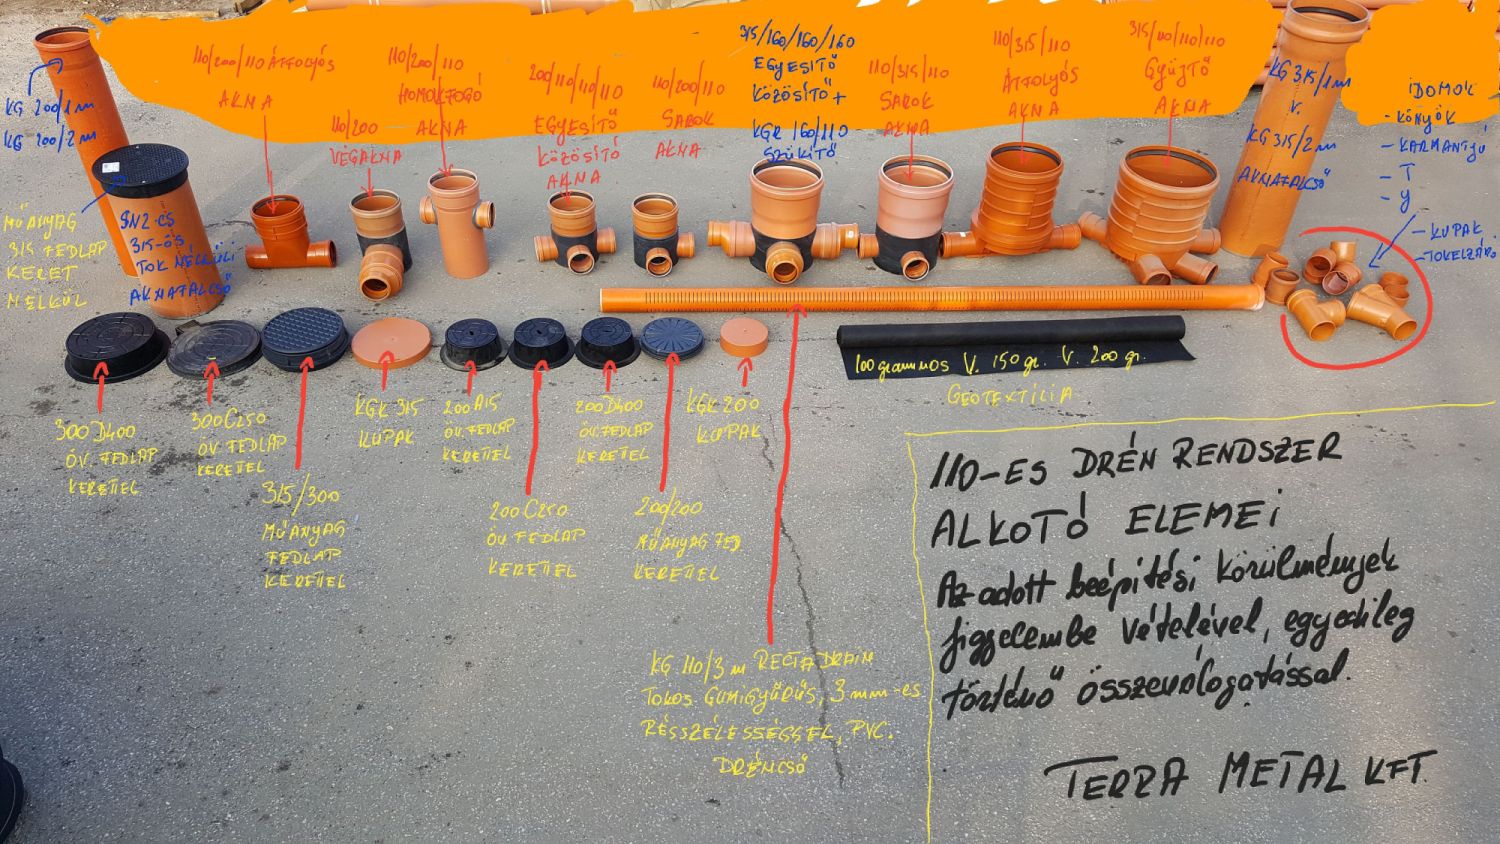 KG 200/1m
KG 200/2m
110/200/110 ÁTFOLYÓS
AKNA
110/200
VÉGAKNA
110/200/110
HOMOKFOGÓ
AKNA
200/110/110/110
EGYESÍTŐ
KÖZÖSÍTŐ
AKNA
110/200/110
SAROK
AKNA
315/160/160/160
EGYESÍTŐ
KÖZÖSÍTŐ +
KGR 160/110
SZŰKÍTŐ
110/315/110
SAROK
AKNA
110/315/110
ÁTFOLYÓS
AKNA
315/110/110/110
GYŰJTŐ
AKNA
KG 315/1m
V.
KG 315/2m
AKNAFALCSŐ
IDOMOK
- KÖNYÖK
- KARMANTYÚ
- T
- Y
- KUPAK
- TOKELZÁRÓ
MŰANYAG
315 FEDLAP
KERET
NÉLKÜL
SN2-ES
315-ÖS
TOK NÉLKÜLI
AKNAFALCSŐ
300D400
ÖV. FEDLAP
KERETTEL
300C250
ÖV. FEDLAP
KERETTEL
315/300
MŰANYAG
FEDLAP
KERETTEL
KGK 315
KUPAK
200A15
ÖV. FEDLAP
KERETTEL
200C250
ÖV. FEDLAP
KERETTEL
200D400
ÖV. FEDLAP
KERETTEL
200/200
MŰANYAG FED
KERETTEL
KGK 200
KUPAK
100 grammos V. 150 gr. V. 200 gr.
GEOTEXTÍLIA
KG 110/3m RECTA DRAIN
TOKOS GUMIGYŰRŰS, 3mm-es
RÉSSZÉLESSÉGGEL, PVC.
DRÉNCSŐ
110-ES DRÉN RENDSZER
ALKOTÓ ELEMEI
Az adott beépítési körülmények
figyelembe vételével, egyedileg
történő összeválogatással.
TERRA METAL KFT.